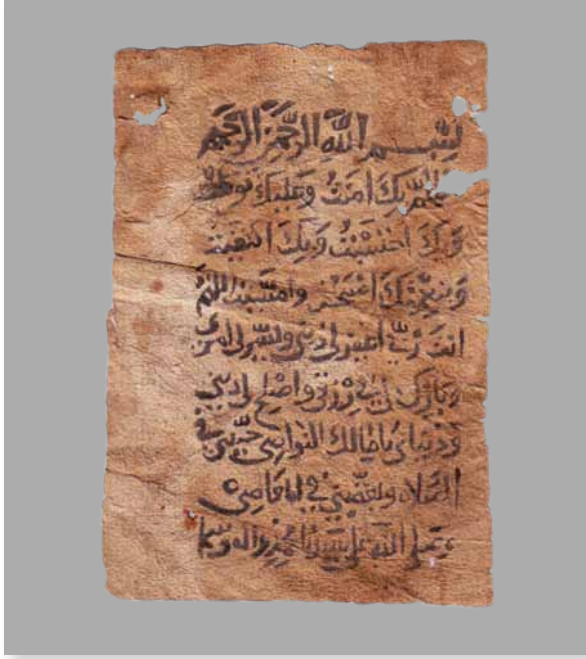 بِسْمِ اللَّهِ الرَّحْمَنِ الرَّحِيم
اللهم بِكَ امَنتُ وَعَليكَ توكلت
وَبِكَ احتسَبْتُ وَبِكَ
وَبنعمتكَ اصبَحتُ وامسَيتُ اللهمَّ
انتَ رَبِّي اغفِر لي ذنبي ويسِّر لي امري
وَبَارِك لي في رِزقي واصْلح لي ديني
وَدُنيَايَ يَا مالك النواصِي حبِّبني في
الصلاة وبغِّضني في المعَاصِي
وصلى الله على سيدنا محمد واله وسلم